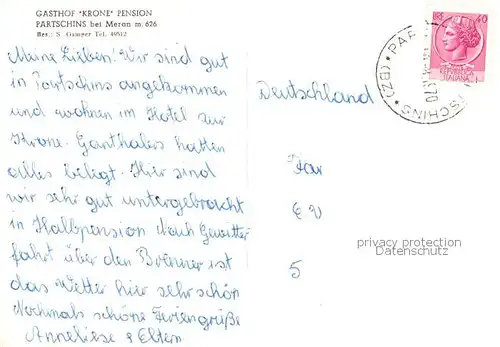 GASTHOF "KRONE" PENSION
PARTSCHINS bei Meran m. 626
Bes.: S. Gamper Tel. 49512
Meine Lieben! Wir sind gut
in Partschins angekommen
und wohnen im Hotel zur
Krone. Ganthalers hatten
alles belegt. Hier sind
wir sehr gut untergebracht
in Halbpension Nach Gewitter
fahrt über den Brenner ist
das Wetter hier sehr schön
Nochmals schöne Feriengrüße
Anneliese & Eltern
Deutschland
EV
5
60
REPVBBLICA
ITALIANA
PARTSCHINS
(BZ)
privacy protection
Datenschutz